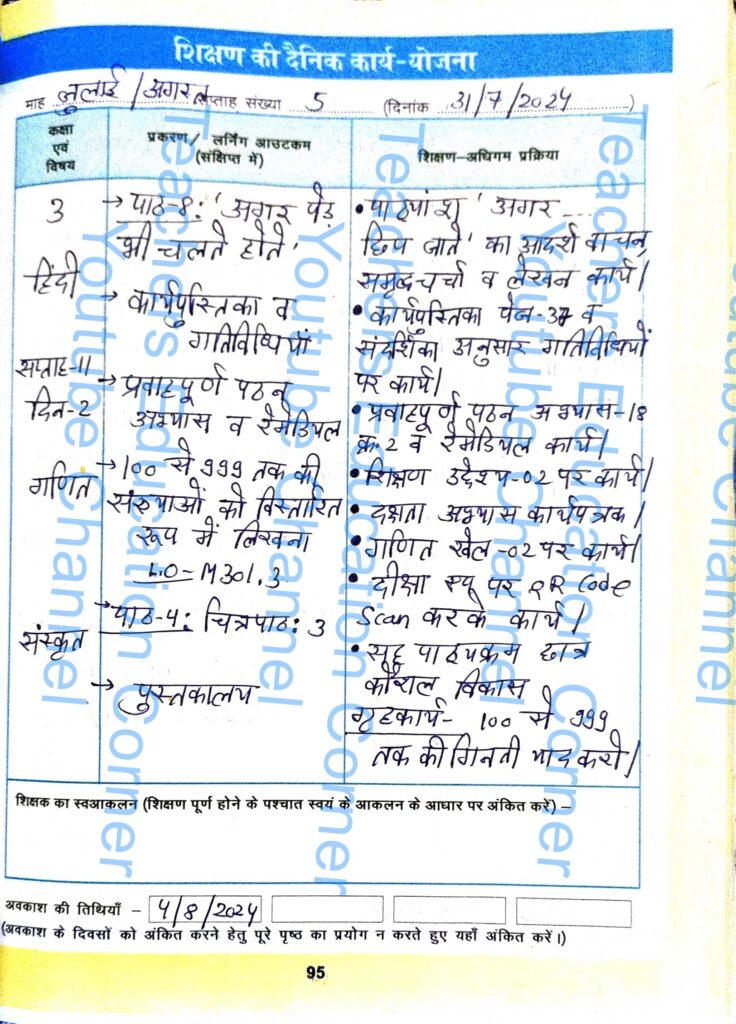 शिक्षण की दैनिक कार्य-योजना
माह जुलाई/अगस्त सप्ताह संख्या 5 (दिनांक 31/7/2024)
कक्षा एवं विषय
प्रकरण/ लर्निंग आउटकम (संक्षिप्त में)
शिक्षण-अधिगम प्रक्रिया
3
हिंदी
सप्ताह-11
दिन-2
गणित
संस्कृत
→ पाठ-8: 'अगर पेड़
भी चलते होते'
→ कार्यपुस्तिका व
गतिविधियां
→ प्रवाहपूर्ण पठन
अभ्यास व रेमेडियल
→ 100 से 999 तक की
संख्याओं को विस्तारित
रूप में लिखना
L.O-M301.3
→ पाठ-4: चित्रपाठ: 3
→ पुस्तकालय
• पाठ्यांश 'अगर ....
छिप जाते' का आदर्श वाचन,
समूह-चर्चा व लेखन कार्य|
• कार्यपुस्तिका पेज-37 व
संदर्शिका अनुसार गतिविधियों
पर कार्य|
• प्रवाहपूर्ण पठन अभ्यास-18
क्र.2 व रेमेडियल कार्य|
• शिक्षण उद्देश्य-02 पर कार्य|
• दक्षता अभ्यास कार्यपत्रक|
• गणित खेल-02 पर कार्य|
• दीक्षा एप पर QR Code
Scan करके कार्य|
• सह पाठ्यक्रम छात्र
कौशल विकास
गृहकार्य- 100 से 999
तक की गिनती याद करो|
शिक्षक का स्वआकलन (शिक्षण पूर्ण होने के पश्चात स्वयं के आकलन के आधार पर अंकित करें) –
अवकाश की तिथियाँ – 4/8/2024
(अवकाश के दिवसों को अंकित करने हेतु पूरे पृष्ठ का प्रयोग न करते हुए यहाँ अंकित करें।)
95
Teachers Education Corner
Youtube Channel
Teachers Education Corner
Youtube Channel
Teachers Education Corner
Youtube Channel